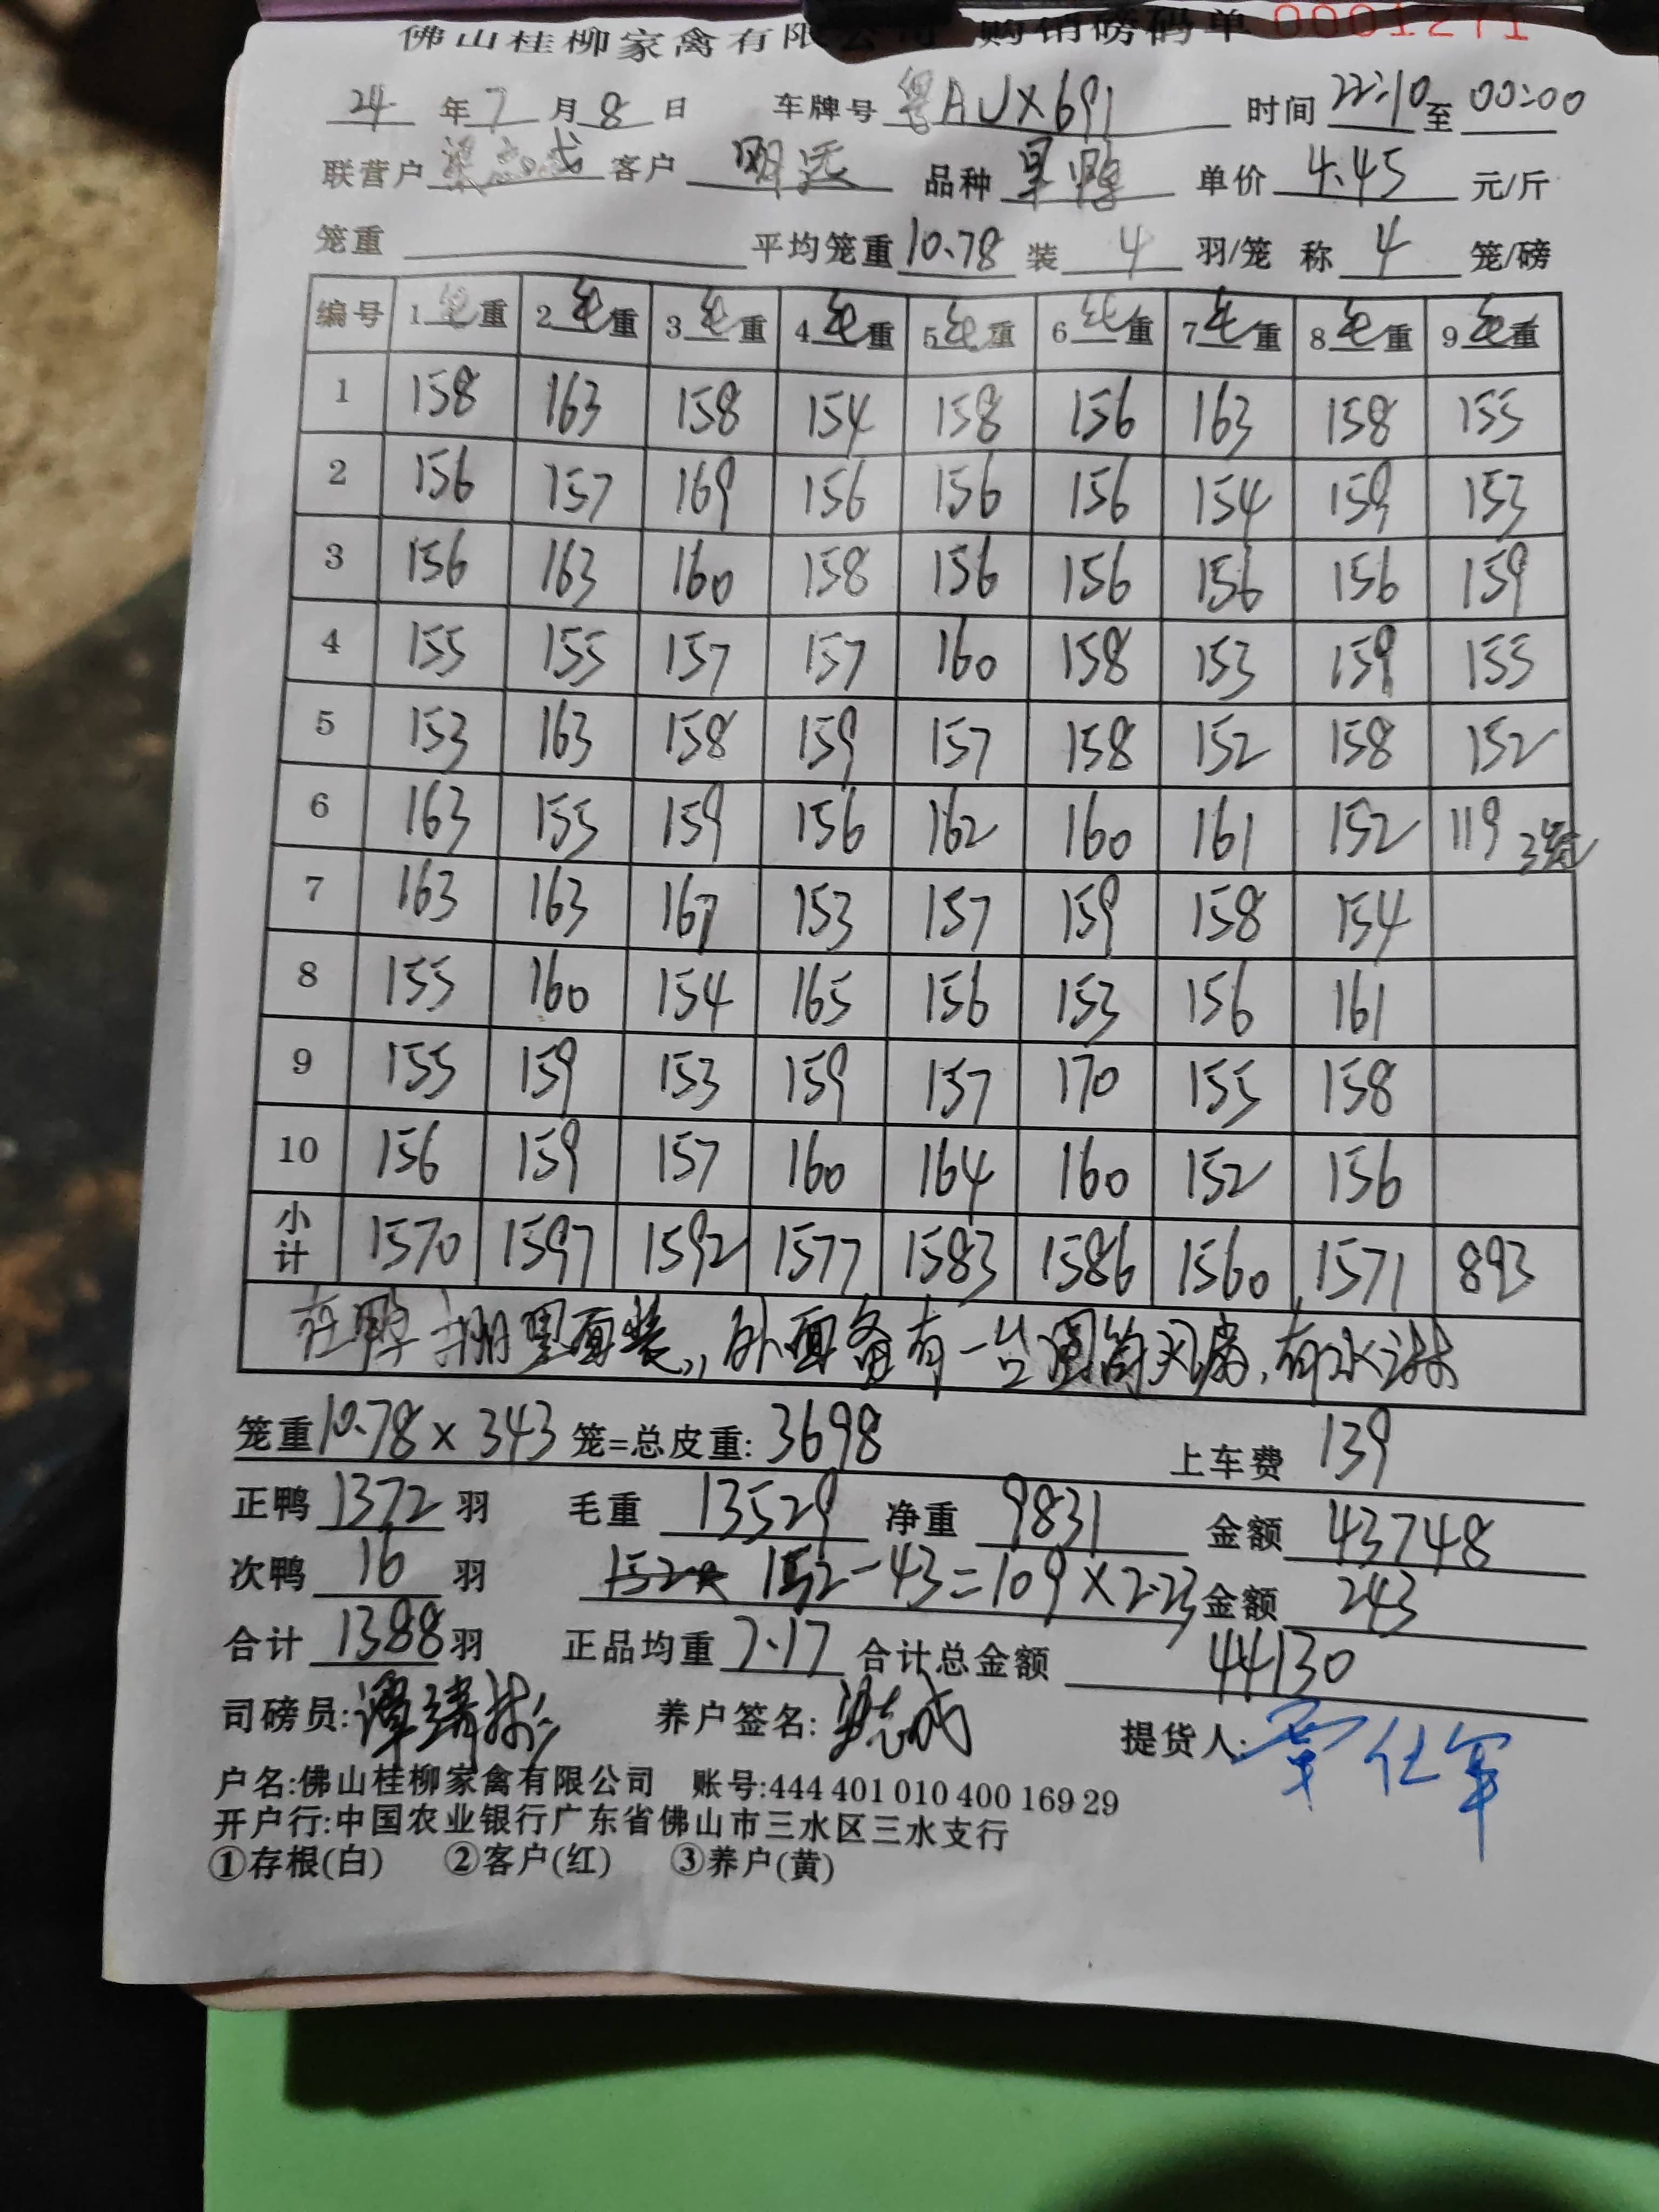 佛山桂柳家禽有限公司 购销磅码单 0001271
24 年 7 月 8 日 车牌号 粤AUX691 时间 22:10 至 00:00
联营户 梁志成 客户 明远 品种 单价 4.45 元/斤
笼重 平均笼重 10.78 装 4 羽/笼 称 4 笼/磅
编号 1毛重 2毛重 3毛重 4毛重 5毛重 6毛重 7毛重 8毛重 9毛重
1 158 163 158 154 158 156 163 158 155
2 156 157 169 156 156 156 154 159 153
3 156 163 160 158 156 156 156 156 159
4 155 155 157 157 160 158 153 159 155
5 153 163 158 159 157 158 152 158 152
6 163 155 159 156 162 160 161 152 119 3笼
7 163 163 167 153 157 159 158 154
8 155 160 154 165 156 153 156 161
9 155 159 153 159 157 170 155 158
10 156 159 157 160 164 160 152 156
小计 1570 1597 1592 1577 1583 1586 1560 1571 893
在鸭棚里面装,外面备有一台圆筒风扇,有水淋
笼重 10.78 × 343 笼=总皮重: 3698 上车费 139
正鸭 1372 羽 毛重 13529 净重 9831 金额 43748
次鸭 16 羽 152-43=109×2.23 金额 243
合计 1388 羽 正品均重 7.17 合计总金额 44130
司磅员: 养户签名: 梁志成 提货人:
户名:佛山桂柳家禽有限公司 账号:444 401 010 400 169 29
开户行:中国农业银行广东省佛山市三水区三水支行
①存根(白) ②客户(红) ③养户(黄)